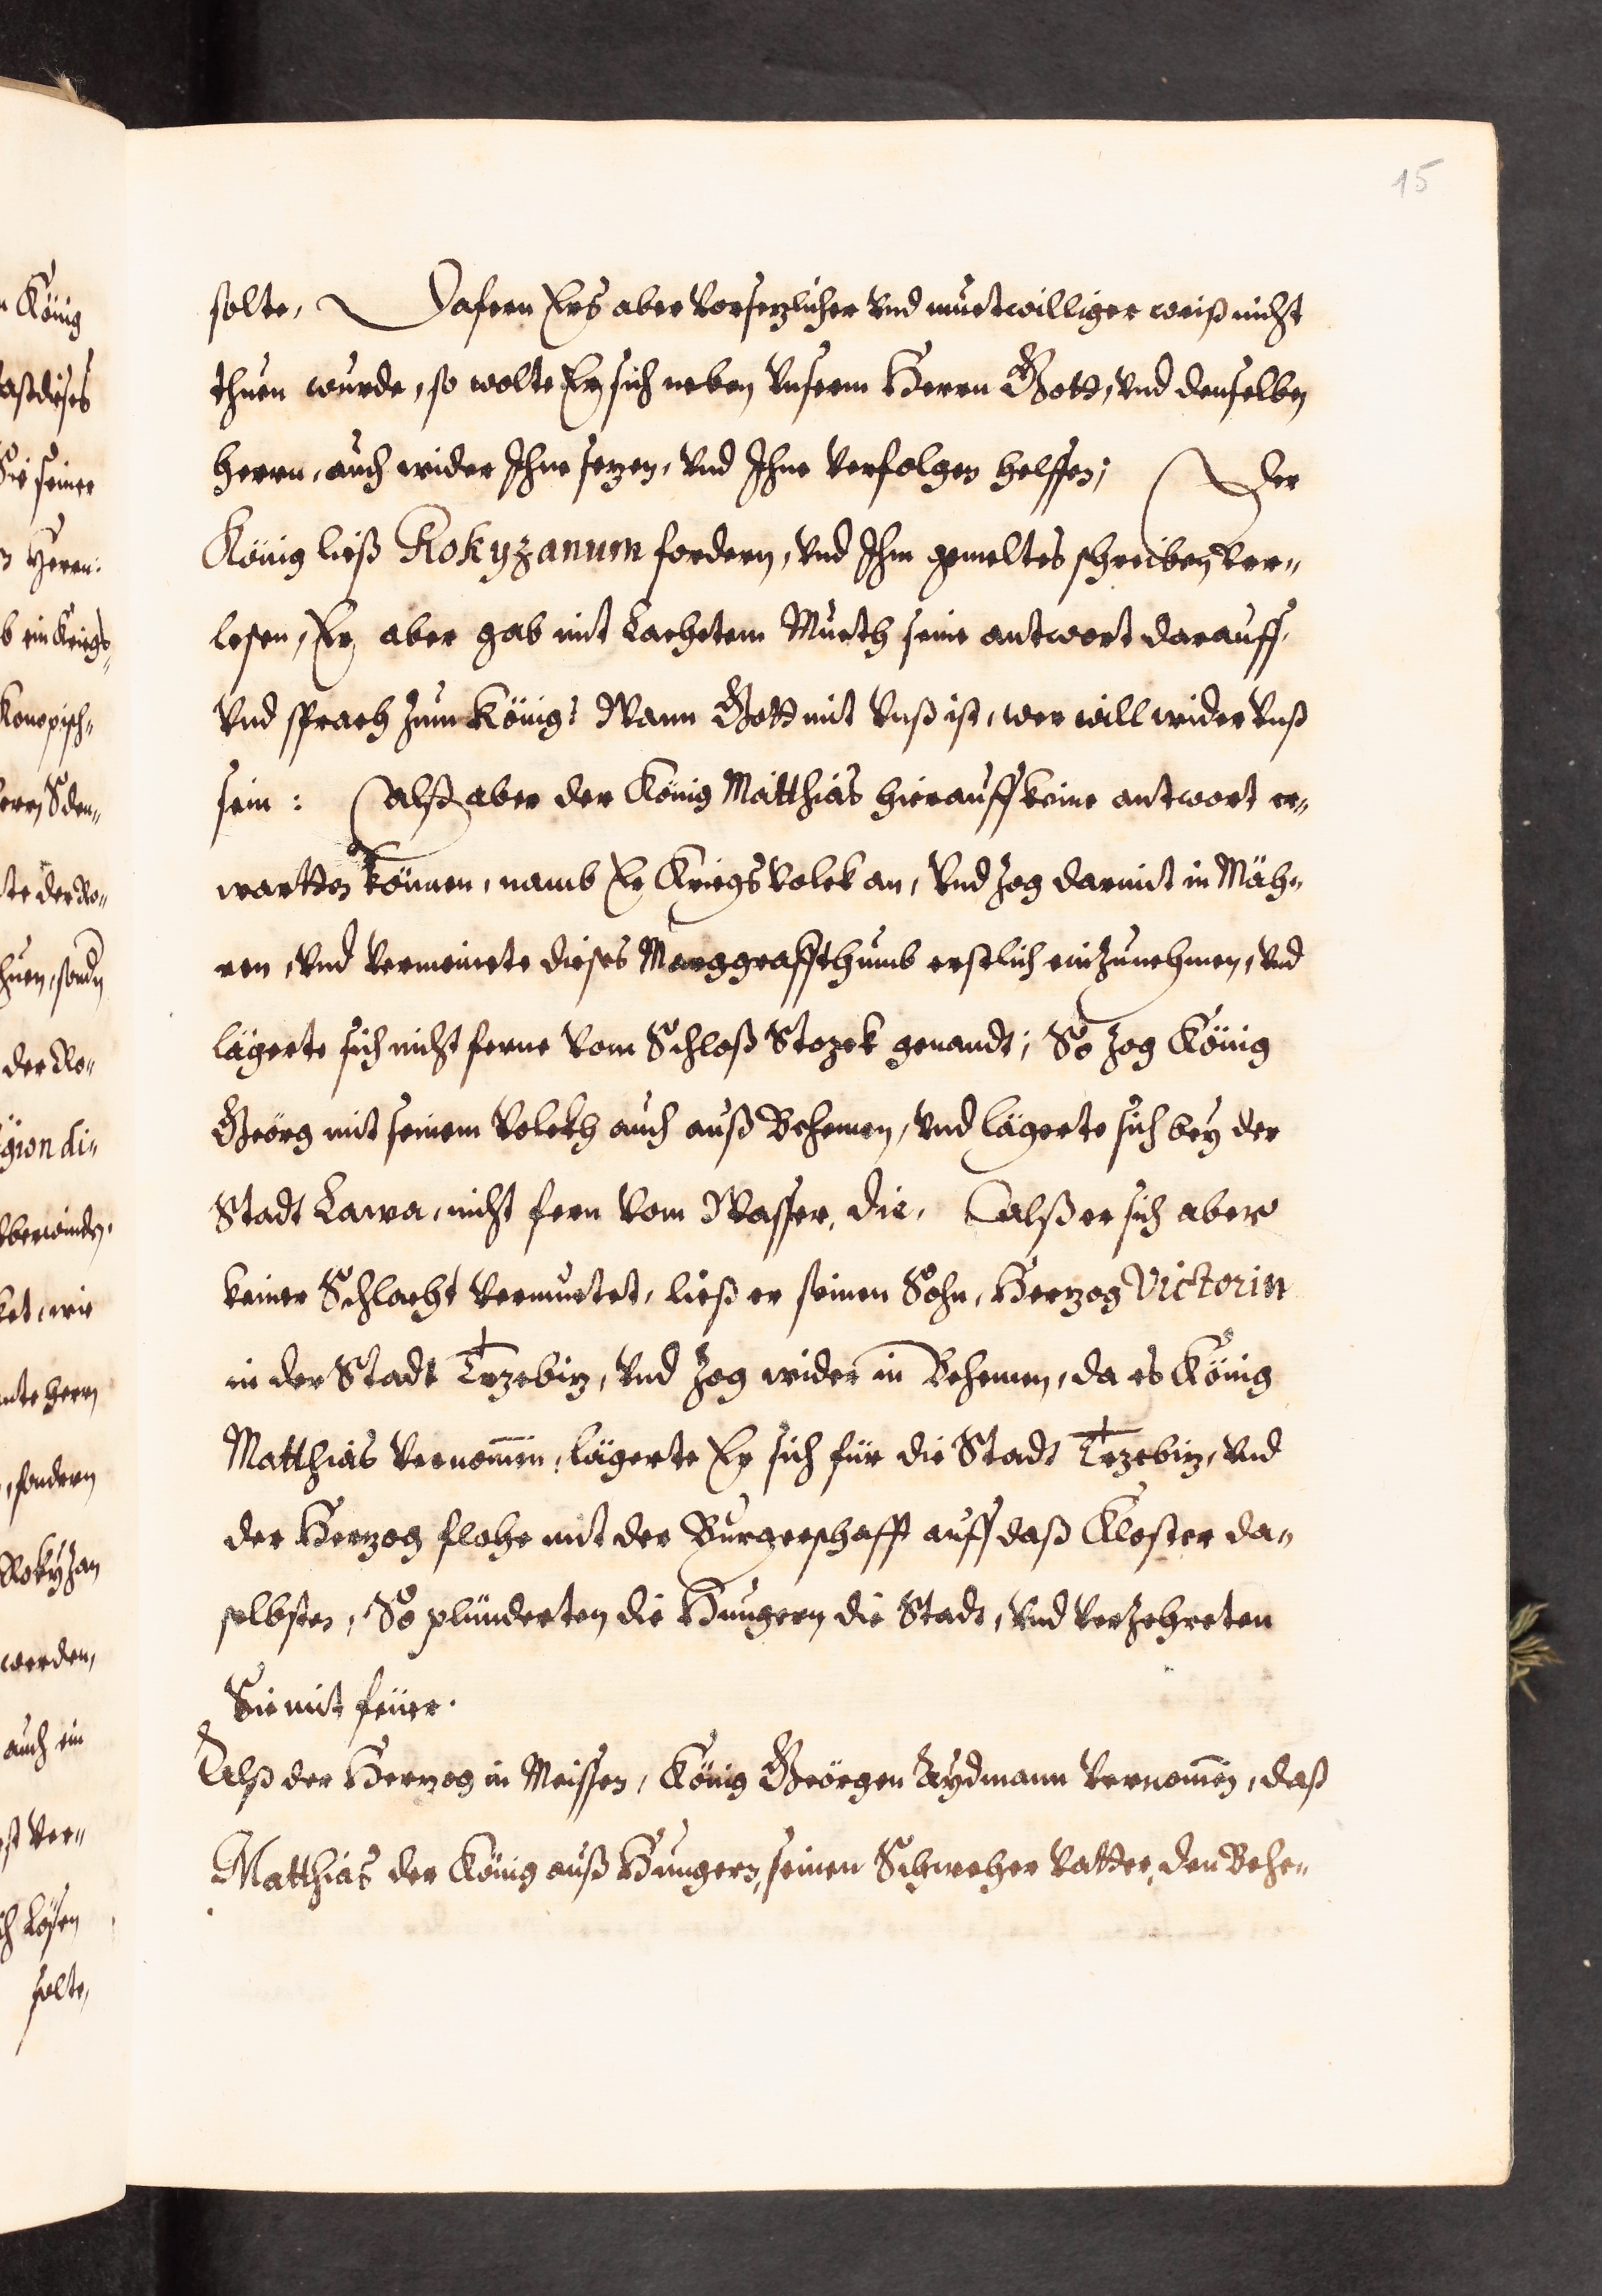 15
solte, Dafern Ers aber vorsezlicher vnd muetwilliger weiß nicht
thuen wurde, so wolte Er sich neben vnserm Herrn Gott, vnd denselben
herrn, auch wider Ihne sezen, vnd Ihne verfolgen helffen; Der
König ließ Rokyzanum fordern, vnd Ihm gemeltes schreiben ver„
lesen, Er aber gab mit Lachetem Mueth seine antwort darauff,
vnd sprach zum König: Wann Gott mit vnß ist, wer will wider vnß
sein: Alß aber der König Matthias hierauff keine antwort er„
wartten können, namb Er Kriegsvolck an, vnd zog darmit in Mäh„
ren, vnd vermeinete dieses Marggraffthumb erstlich einzunehmen, vnd
lägerte sich nicht ferne vom Schloß Stozek genandt; So zog König
Geörg mit seinem Volckh auch auß Behemen, vnd lägerte sich bey der
Stadt Lawa, nicht fern vom Wasser, die, Alß er sich aber
keiner Schlacht vermuetet, ließ er seinen Sohn, Herzog Victorin
in der Stadt Trzebiz, vnd zog wider in Behemen, da es König
Matthias vernom̄en, lägerte Er sich für die Stadt Trzebiz, vnd
der Herzog flohe mit der Burgerschafft auff daß Kloster da„
selbsten, So plünderten die Hungern die Stadt, vnd verzehreten
Sie mit feüer.
Alß der Herzog in Meissen, König Geörgen Aydmann vernom̄en, daß
Matthias der König auß Hungern, seinen Schweher Vatter, den Behe„
König
dieses
seiner
Herrn:
ein Kriegs„
Konopisch„
Sden„
der Ro„
der Ro„
gion di„
wie
herrn
, sondern
Rokyzan
werden,
auch ein
Ver„
Lösen
solte,